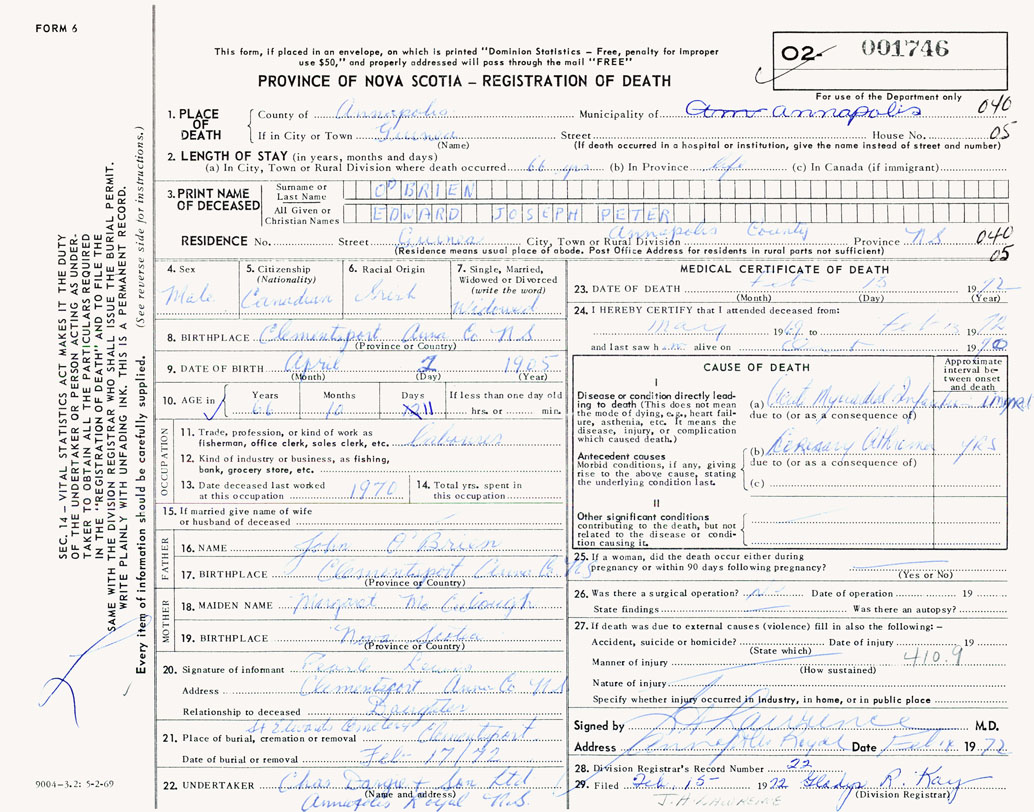 FORM 6
This form, if placed in an envelope, on which is printed "Dominion Statistics – Free, penalty for improper
use $50," and properly addressed will pass through the mail "FREE"
PROVINCE OF NOVA SCOTIA – REGISTRATION OF DEATH
02- 001746
For use of the Department only
1. PLACE OF DEATH
County of Annapolis Municipality of Annapolis 040
If in City or Town Guinea Street House No. 05
(Name) (If death occurred in a hospital or institution, give the name instead of street and number)
2. LENGTH OF STAY (in years, months and days)
(a) In City, Town or Rural Division where death occurred 66 yrs (b) In Province life (c) In Canada (if immigrant)
3. PRINT NAME OF DECEASED
Surname or Last Name O'BRIEN
All Given or Christian Names EDWARD JOSEPH PETER
RESIDENCE No. Street Guinea City, Town or Rural Division Annapolis County Province N S 040
(Residence means usual place of abode. Post Office Address for residents in rural parts not sufficient) 05
4. Sex Male
5. Citizenship (Nationality) Canadian
6. Racial Origin Irish
7. Single, Married, Widowed or Divorced (write the word) Widowed
8. BIRTHPLACE Clementsport Anna Co N.S
(Province or Country)
9. DATE OF BIRTH April 2 1905
(Month) (Day) (Year)
10. AGE in Years Months Days If less than one day old
66 10 11 hrs. or min.
OCCUPATION
11. Trade, profession, or kind of work as fisherman, office clerk, sales clerk, etc. Labourer
12. Kind of industry or business, as fishing, bank, grocery store, etc.
13. Date deceased last worked at this occupation 1970
14. Total yrs. spent in this occupation
15. If married give name of wife or husband of deceased
FATHER
16. NAME John O'Brien
17. BIRTHPLACE Clementsport Anna Co. N S
(Province or Country)
MOTHER
18. MAIDEN NAME Margaret
19. BIRTHPLACE Nova Scotia
(Province or Country)
20. Signature of informant
Address Clementsport Anna Co N.S
Relationship to deceased Daughter
21. Place of burial, cremation or removal St Edwards Cemetery Clementsport
Date of burial or removal Feb 17/72
22. UNDERTAKER Chas + Son Ltd
(Name and address)
Annapolis Royal N.S.
MEDICAL CERTIFICATE OF DEATH
23. DATE OF DEATH Feb 13 1972
(Month) (Day) (Year)
24. I HEREBY CERTIFY that I attended deceased from:
May 1969 to Feb 13 1972
and last saw h alive on 19
CAUSE OF DEATH
Approximate interval between onset and death
I
Disease or condition directly leading to death (This does not mean the mode of dying, e.g., heart failure, asthenia, etc. It means the disease, injury, or complication which caused death.)
(a) Acute Myocardial Infarction
due to (or as a consequence of)
Antecedent causes
Morbid conditions, if any, giving rise to the above cause, stating the underlying condition last.
(b) Coronary yrs
due to (or as a consequence of)
(c)
II
Other significant conditions contributing to the death, but not related to the disease or condition causing it.
25. If a woman, did the death occur either during pregnancy or within 90 days following pregnancy?
(Yes or No)
26. Was there a surgical operation? Date of operation 19
State findings Was there an autopsy?
27. If death was due to external causes (violence) fill in also the following: –
Accident, suicide or homicide? Date of injury 19
(State which)
Manner of injury 410.9
(How sustained)
Nature of injury
Specify whether injury occurred in industry, in home, or in public place
Signed by Lawrence M.D.
Address Annapolis Royal Date Feb 14 1972
28. Division Registrar's Record Number 22
29. Filed Feb. 15 1972 Gladys R. Kay
(Division Registrar)
J.H. LAWRENCE
9004-3.2: 5-2-69
SEC. 14 – VITAL STATISTICS ACT MAKES IT THE DUTY
OF THE UNDERTAKER OR PERSON ACTING AS UNDER-
TAKER TO OBTAIN ALL THE PARTICULARS REQUIRED
IN THE "REGISTRATION OF DEATH" AND TO FILE THE
SAME WITH THE DIVISION REGISTRAR WHO SHALL ISSUE THE BURIAL PERMIT.
WRITE PLAINLY WITH UNFADING INK. THIS IS A PERMANENT RECORD.
Every item of information should be carefully supplied. (See reverse side for instructions.)